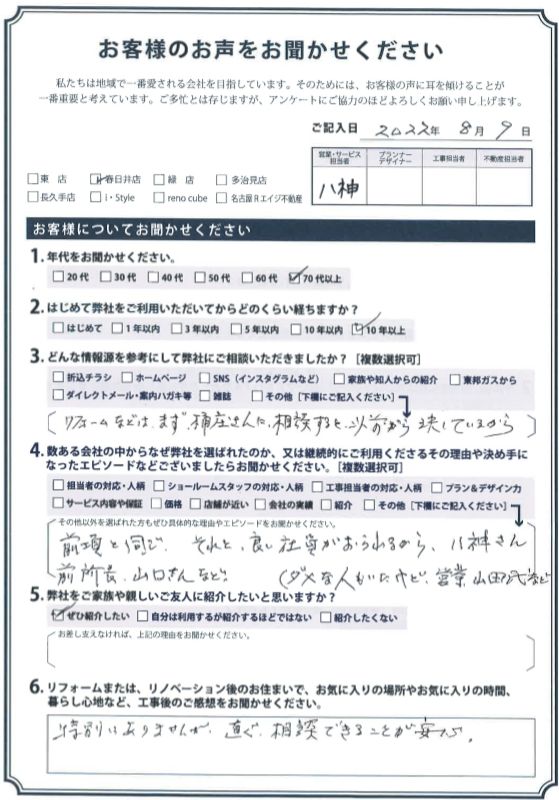 お客様のお声をお聞かせください
私たちは地域で一番愛される会社を目指しています。そのためには、お客様の声に耳を傾けることが
一番重要と考えています。ご多忙とは存じますが、アンケートにご協力のほどよろしくお願い申し上げます。
ご記入日 2022年 8月 9日
営業・サービス担当者 プランナーデザイナー 工事担当者 不動産担当者
八神
□東 店 ☑春日井店 □緑 店 □多治見店
□長久手店 □i・Style □reno cube □名古屋Rエイジ不動産
お客様についてお聞かせください
1. 年代をお聞かせください。
□20代 □30代 □40代 □50代 □60代 ☑70代以上
2. はじめて弊社をご利用いただいてからどのくらい経ちますか？
□はじめて □1年以内 □3年以内 □5年以内 □10年以内 ☑10年以上
3. どんな情報源を参考にして弊社にご相談いただきましたか？［複数選択可］
□折込チラシ □ホームページ □SNS（インスタグラムなど） □家族や知人からの紹介 □東邦ガスから
□ダイレクトメール・案内ハガキ等 □雑誌 □その他［下欄にご記入ください］
リフォームなどは、まず、桶庄さんに、相談すると、以前から決しているから
4. 数ある会社の中からなぜ弊社を選ばれたのか、又は継続的にご利用くださるその理由や決め手に
なったエピソードなどございましたらお聞かせください。［複数選択可］
□担当者の対応・人柄 □ショールームスタッフの対応・人柄 □工事担当者の対応・人柄 □プラン＆デザイン力
□サービス内容や保証 □価格 □店舗が近い □会社の実績 □紹介 □その他［下欄にご記入ください］
その他以外を選ばれた方もぜひ具体的な理由やエピソードをお聞かせください。
前項と同じ、それと、良い社員がおられるから、八神さん
前所長、山口さんなど。(ダメな人もいたけど、営業、山田氏など
5. 弊社をご家族や親しいご友人に紹介したいと思いますか？
☑ぜひ紹介したい □自分は利用するが紹介するほどではない □紹介したくない
お差し支えなければ、上記の理由をお聞かせください。
6. リフォームまたは、リノベーション後のお住まいで、お気に入りの場所やお気に入りの時間、
暮らし心地など、工事後のご感想をお聞かせください。
特別にありませんが、直ぐ、相談できることが安心。